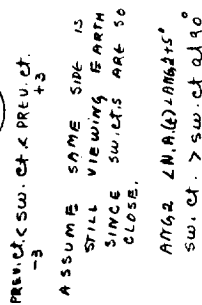 PREV.Ct.< SW. Ct.< PREV. Ct.
-3 +3
ASSUME SAME SIDE IS
STILL VIEWING EARTH
SINCE SW.CTS ARE SO
CLOSE.
ANG2 < N.A.(t) < ANG2+5°
SW. Ct. > SW. Ct at 90°